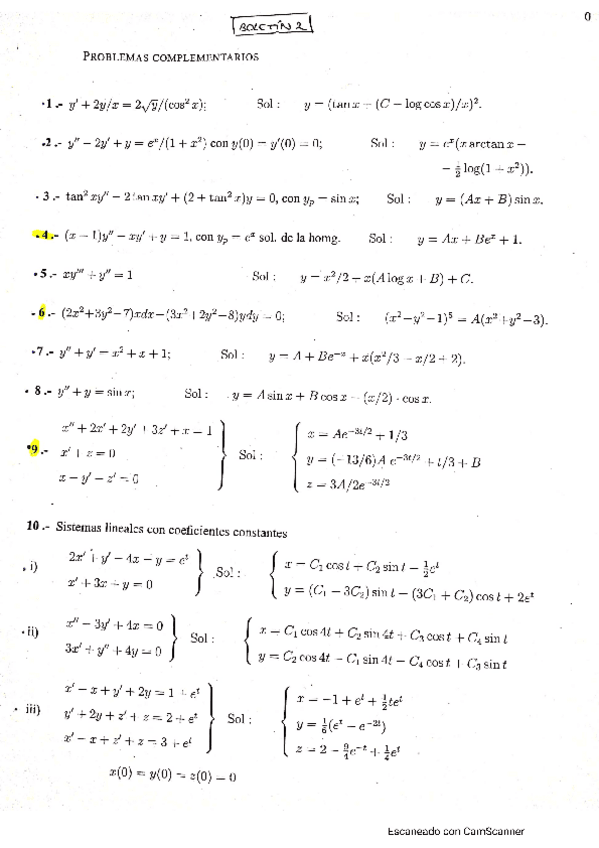 BOLETÍN 2
0
PROBLEMAS COMPLEMENTARIOS
1.- y′ + 2y/x = 2√y/(cos² x); Sol : y = (tan x + (C + log cos x)/x)².
2.- y″ − 2y′ + y = eˣ/(1 + x²) con y(0) = y′(0) = 0; Sol : y = eˣ(x arctan x −
− ½ log(1 + x²)).
3.- tan² xy″ − 2 tan xy′ + (2 + tan² x)y = 0, con yₚ = sin x; Sol : y = (Ax + B) sin x.
4.- (x − 1)y″ − xy′ + y = 1, con yₚ = eˣ sol. de la homg. Sol : y = Ax + Beˣ + 1.
5.- xy‴ + y″ = 1 Sol : y = x²/2 + x(A log x + B) + C.
6.- (2x²+3y²−7)xdx−(3x²+2y²−8)ydy = 0; Sol : (x²−y²−1)⁵ = A(x²+y²−3).
7.- y″ + y′ = x² + x + 1; Sol : y = A + Be⁻ˣ + x(x²/3 − x/2 + 2).
8.- y″ + y = sin x; Sol : y = A sin x + B cos x − (x/2) · cos x.
9.- x″ + 2x′ + 2y′ + 3z′ + x = 1
x′ + z = 0
x − y′ − z′ = 0
Sol :
x = Ae^{−3t/2} + 1/3
y = (−13/6)A e^{−3t/2} + t/3 + B
z = 3A/2e^{−3t/2}
10.- Sistemas lineales con coeficientes constantes
i) 2x′ + y′ − 4x − y = eᵗ
x′ + 3x + y = 0
Sol :
x = C₁ cos t + C₂ sin t − ½eᵗ
y = (C₁ − 3C₂) sin t − (3C₁ + C₂) cos t + 2eᵗ
ii) x″ − 3y′ + 4x = 0
3x′ + y″ + 4y = 0
Sol :
x = C₁ cos 4t + C₂ sin 4t + C₃ cos t + C₄ sin t
y = C₂ cos 4t − C₁ sin 4t − C₄ cos t + C₃ sin t
iii) x′ − x + y′ + 2y = 1 + eᵗ
y′ + 2y + z′ + z = 2 + eᵗ
x′ − x + z′ + z = 3 + eᵗ
Sol :
x = −1 + eᵗ + ½teᵗ
y = ⅙(eᵗ − e^{−2t})
z = 2 − 9/4e^{−t} + ¼eᵗ
x(0) = y(0) = z(0) = 0
Escaneado con CamScanner